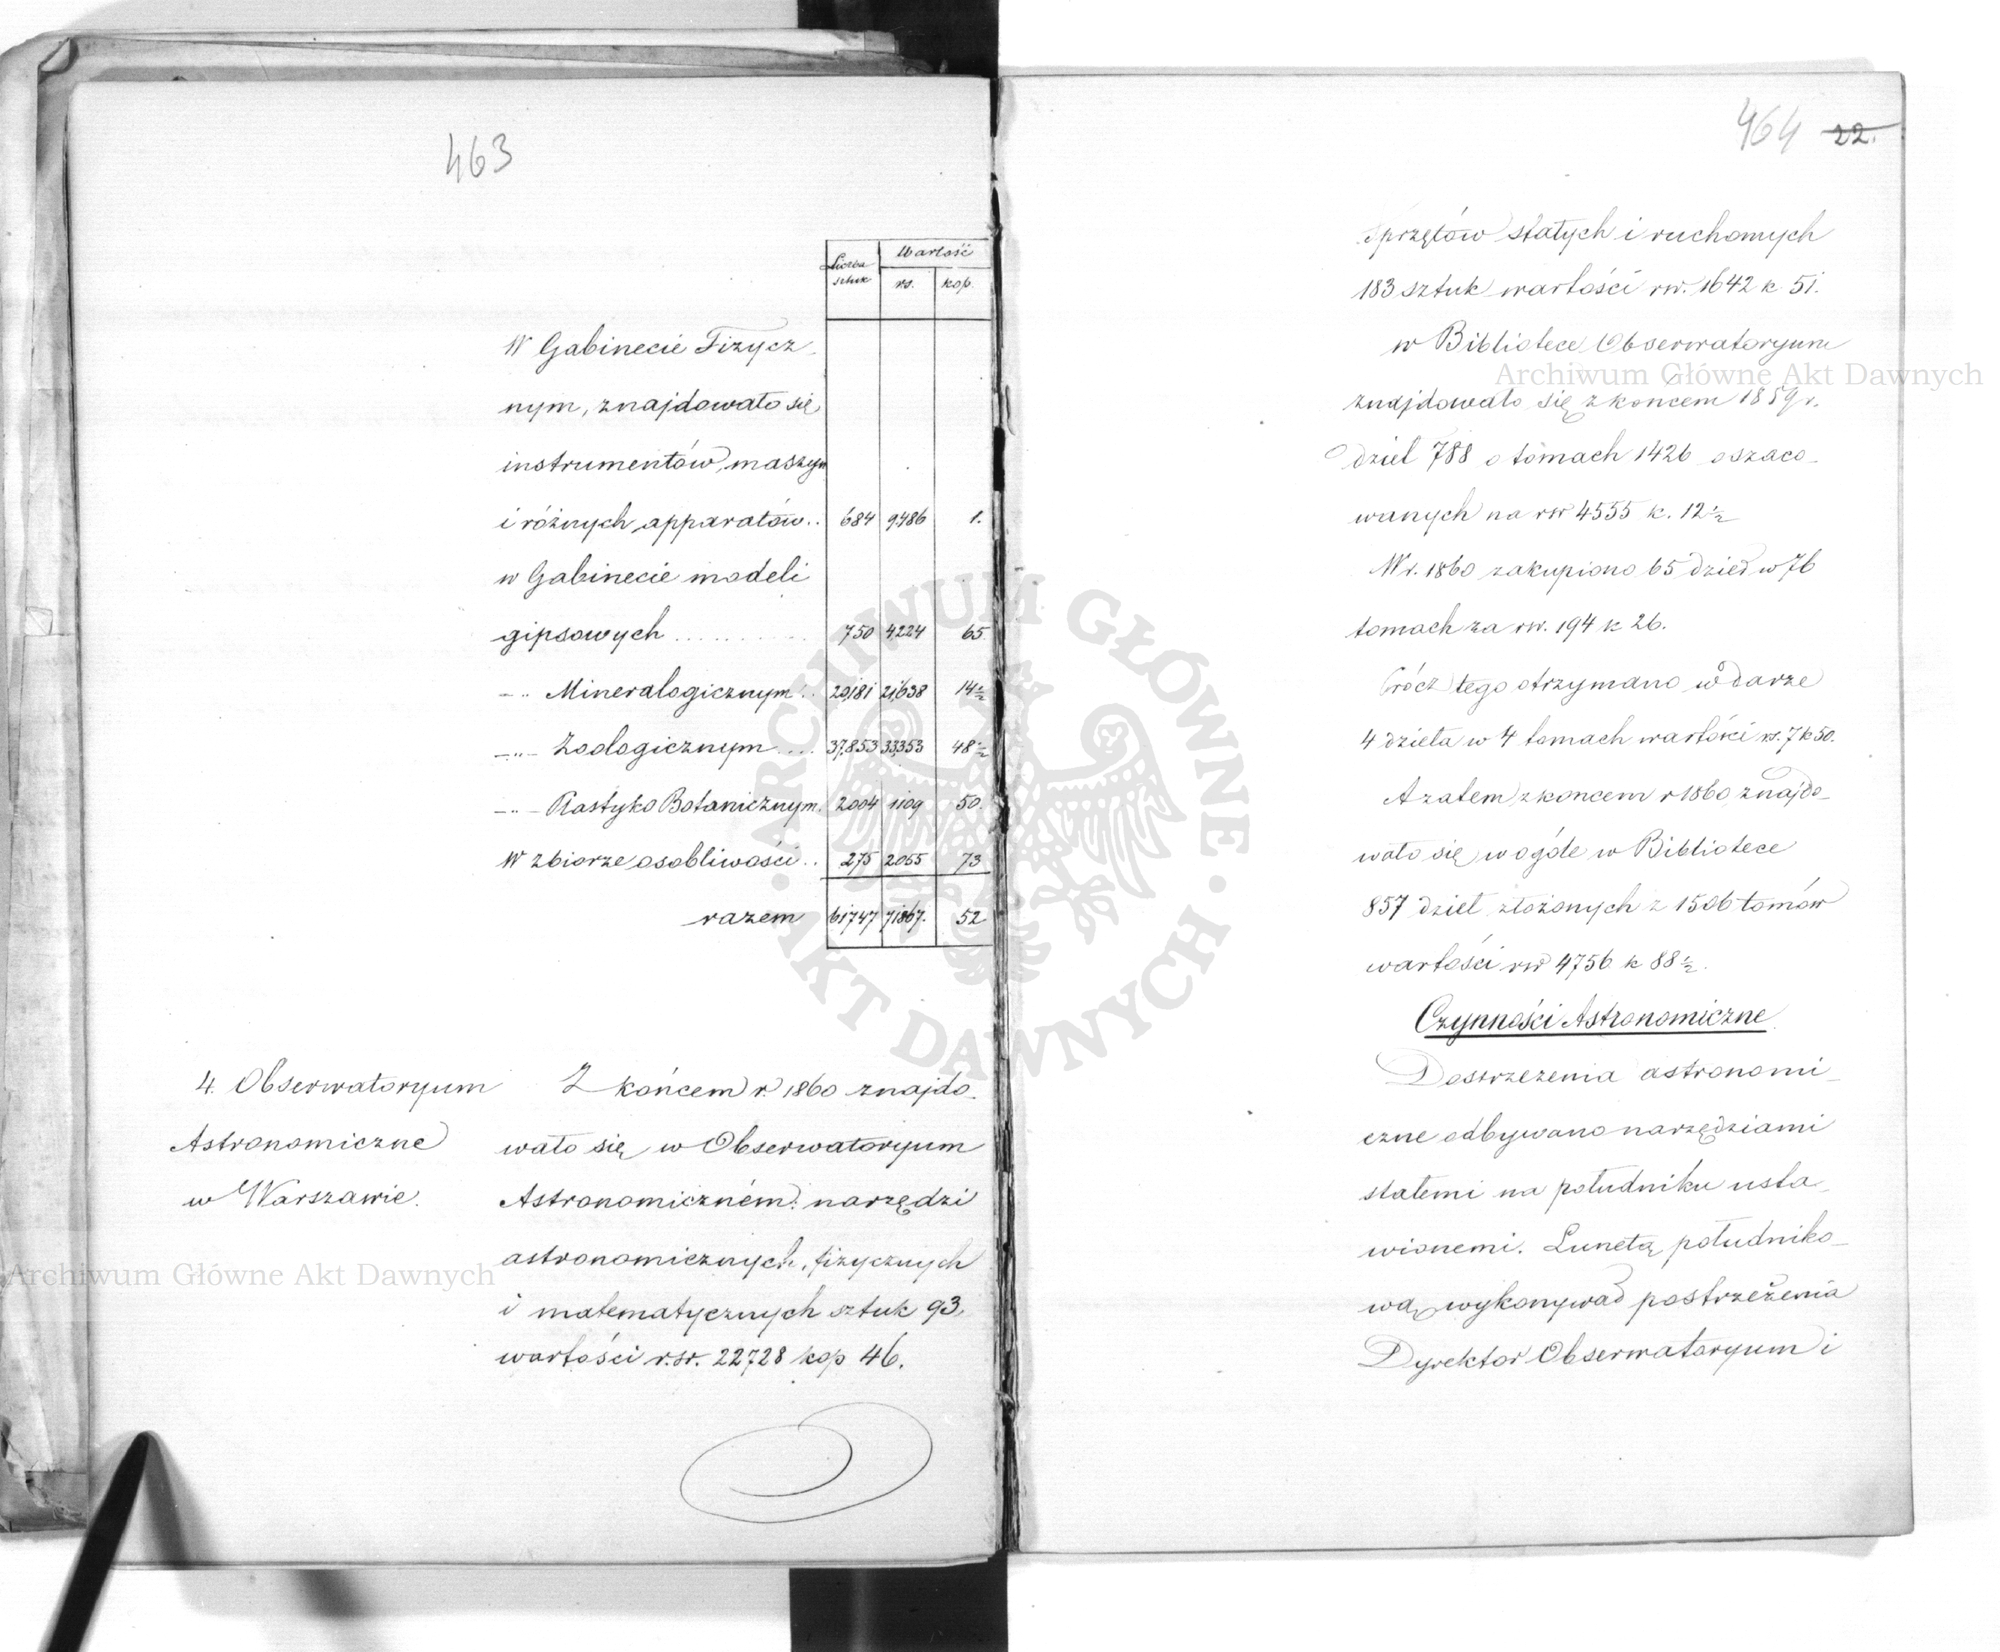 463
Liczba sztuk Wartość
rs. kop.
W Gabinecie Fizycz-
nym, znajdowało się
instrumentów, maszyn
i różnych apparatów.. 684 9486 1.
w Gabinecie modeli
gipsowych .......... 750 4224 65
-"- Mineralogicznym.. 20,181 21,638 14½
-"- Zoologicznym.... 37,853 33,353 48½
-"- Rastyko Botanicznym. 2004 1109 50.
W zbiorze osobliwości.. 275 2055 73
razem 61747 71867. 52
4. Obserwatoryum
Astronomiczne
w Warszawie.
Z końcem r. 1860 znajdo-
wało się w Obserwatoryum
Astronomiczném: narzędzi
astronomicznych, fizycznych
i matematycznych sztuk 93.
wartości r.sr. 22728 kop 46.
464 22.
Sprzętów stałych i ruchomych
183 sztuk wartości rs. 1642 k 51.
w Bibliotece Obserwatoryum
znajdowało się z końcem 1859 r.
dzieł 788 o tomach 1426 oszaco-
wanych na rsr 4555 k. 12½
W r. 1860 zakupiono 65 dzieł w 76
tomach za rsr. 194 k 26.
Prócz tego otrzymano w darze
4 dzieła w 4 tomach wartości rs. 7 k 50.
A zatem z koncem r 1860 znajdo-
wało się w ogóle w Bibliotece
857 dzieł złożonych z 1506 tomów
wartości rsr 4756 k 88½.
Czynności Astronomiczne
Dostrzeżenia astronomi-
czne odbywano narzędziami
stałemi na południku usta-
wionemi. Lunetą południko-
wą wykonywał postrzeżenia
Dyrektor Obserwatoryum i
Archiwum Główne Akt Dawnych
Archiwum Główne Akt Dawnych
ARCHIWUM GŁÓWNE · AKT DAWNYCH ·